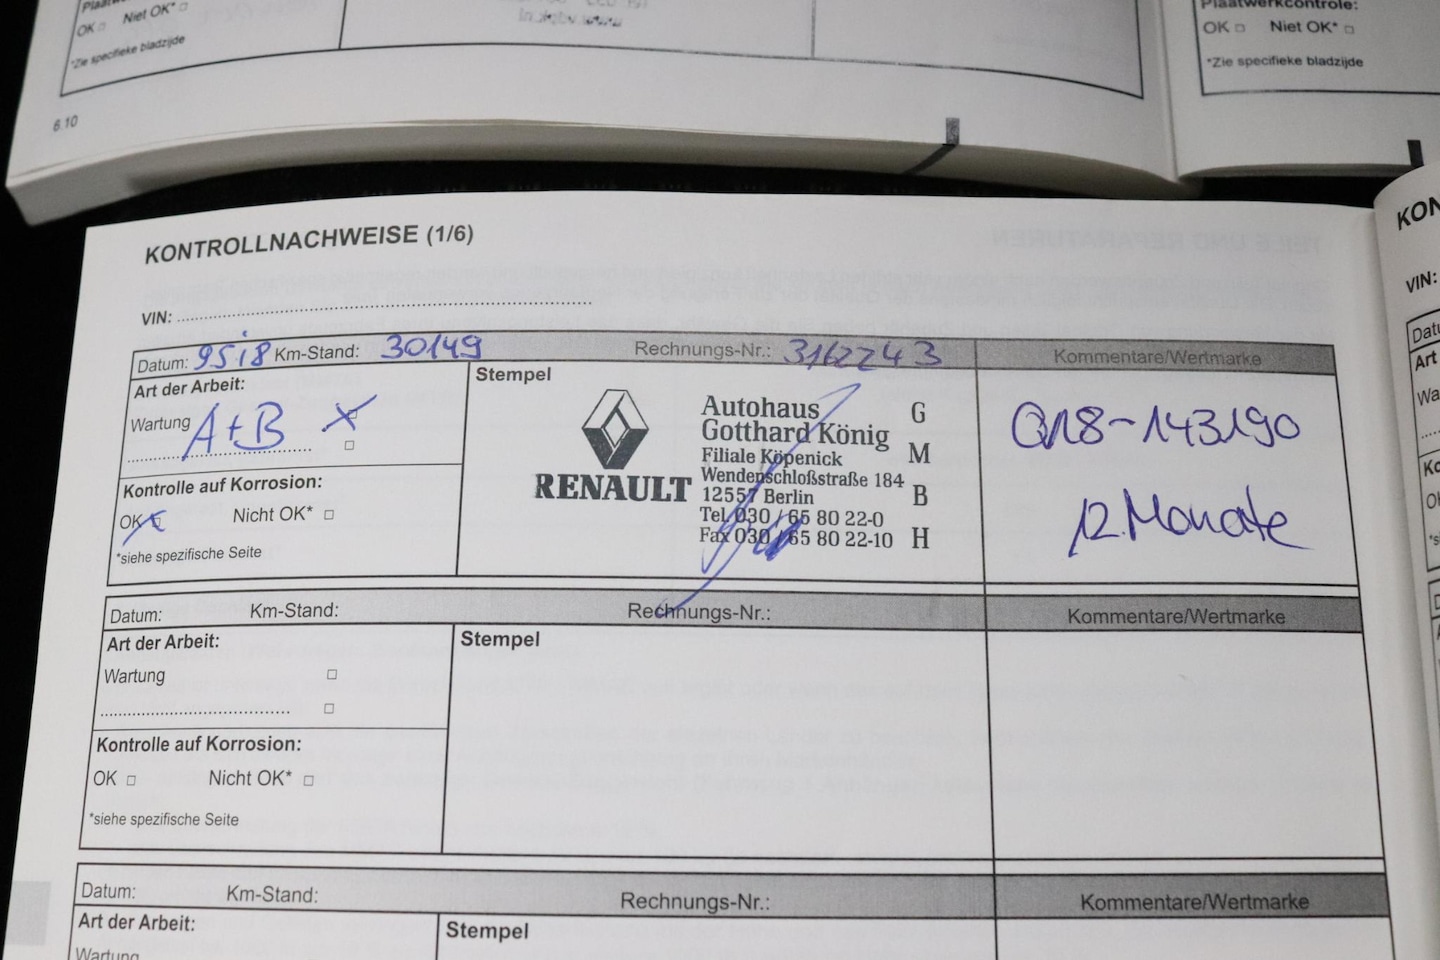 OK □ Niet OK* □
*Zie specifieke bladzijde
6.10
Plaatwerkcontrole:
OK □ Niet OK* □
*Zie specifieke bladzijde
KONTROLLNACHWEISE (1/6)
VIN:
Datum: 9518 Km-Stand: 30149 Rechnungs-Nr.: 3162243 Kommentare/Wertmarke
Art der Arbeit:
Wartung A+B X
Kontrolle auf Korrosion:
OK X Nicht OK* □
*siehe spezifische Seite
Stempel
RENAULT
Autohaus
Gotthard König
Filiale Köpenick
Wendenschloßstraße 184
12557 Berlin
Tel. 030 / 65 80 22-0
Fax 030 / 65 80 22-10
G
M
B
H
Q18-143190
12 Monate
Datum: Km-Stand: Rechnungs-Nr.: Kommentare/Wertmarke
Art der Arbeit:
Wartung □
□
Kontrolle auf Korrosion:
OK □ Nicht OK* □
*siehe spezifische Seite
Stempel
Datum: Km-Stand: Rechnungs-Nr.: Kommentare/Wertmarke
Art der Arbeit:
Wartung
Stempel
VIN:
Art